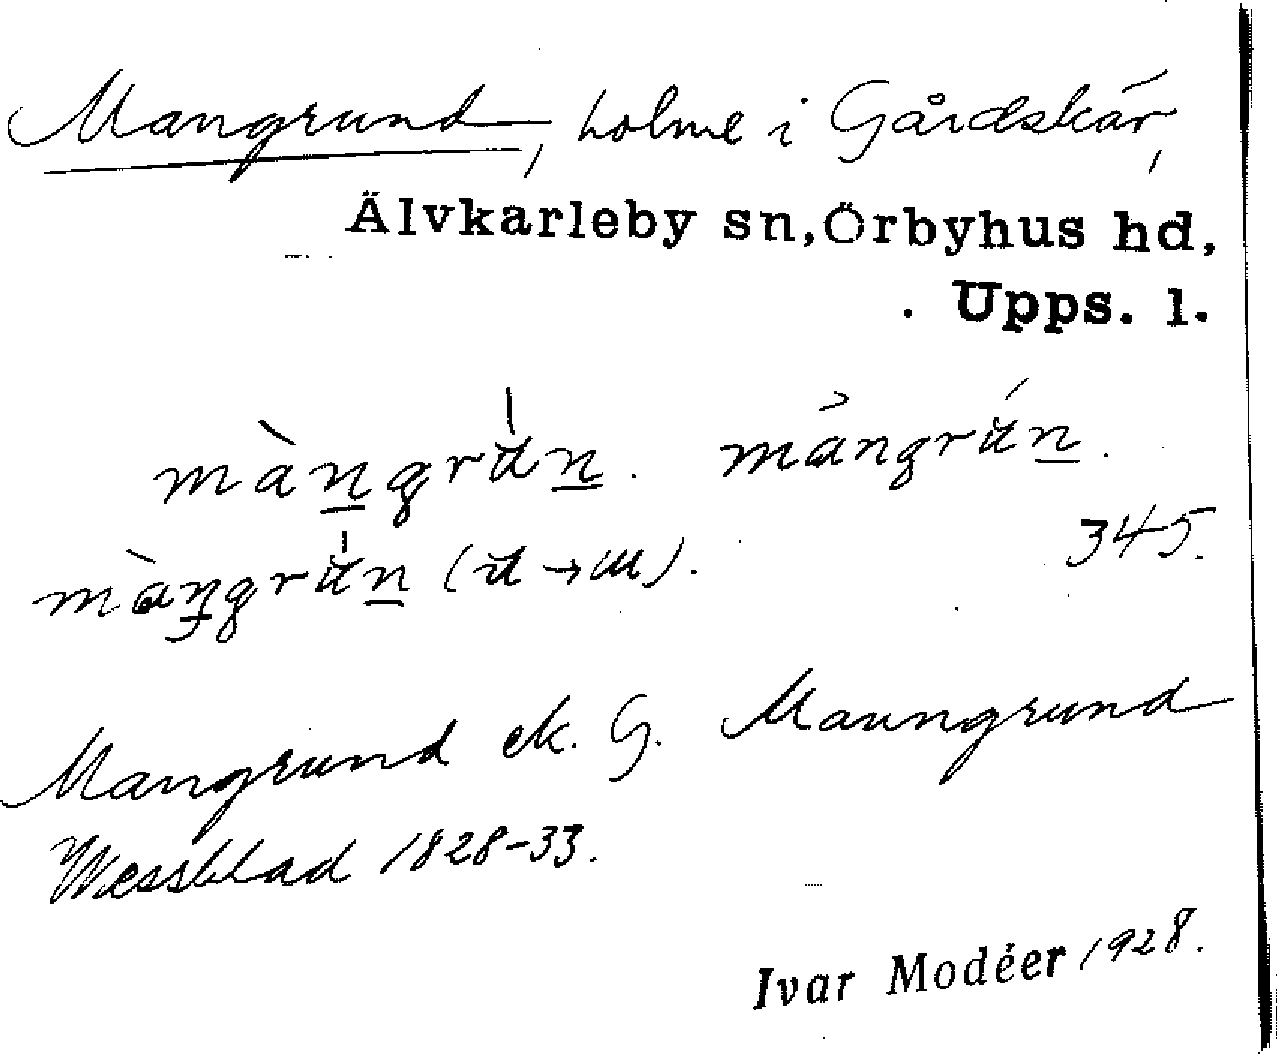 Mangrund, holme i Gårdskär,
Älvkarleby sn, Örbyhus hd,
Upps. l.
màngrùn. mángrún.
345.
màŋgrùn (u → ɯ).
Mangrund ek. G. Maungrund
Wessblad 1828-33.
Ivar Modéer 1928.